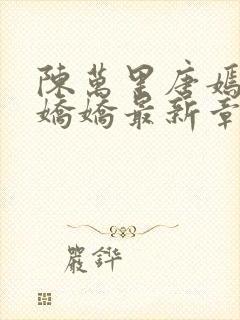 陳萬里唐嫣
嬌嬌最新章
嚴鏵